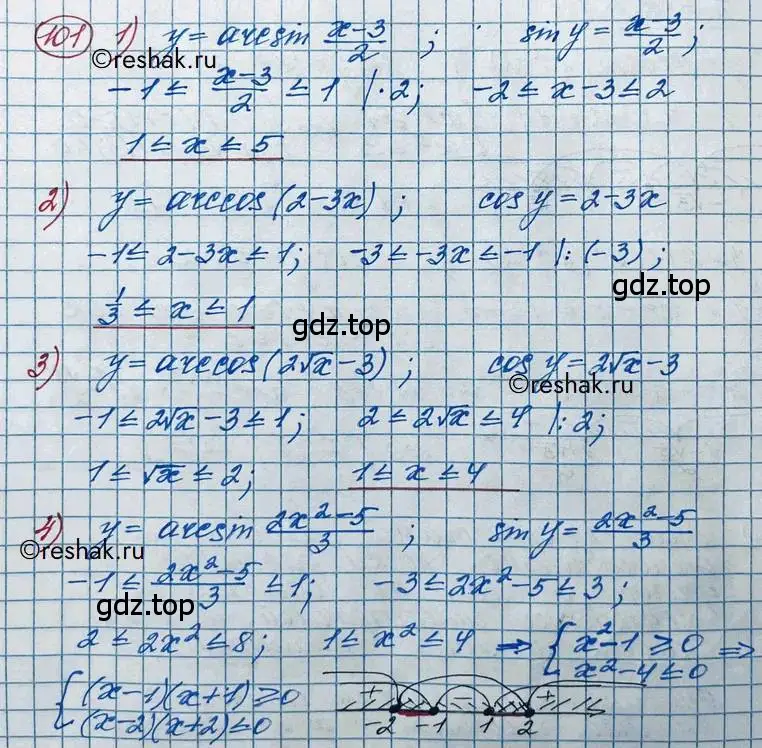 101 1) y = arcsin (x-3)/2 ; sin y = (x-3)/2 ;
©reshak.ru
-1 ≤ (x-3)/2 ≤ 1 |·2; -2 ≤ x-3 ≤ 2
1 ≤ x ≤ 5
2) y = arccos(2-3x) ; cos y = 2-3x
-1 ≤ 2-3x ≤ 1; -3 ≤ -3x ≤ -1 |:(-3) ;
gdz.top
1/3 ≤ x ≤ 1
gdz.top
3) y = arccos(2√x - 3) ; cos y = 2√x - 3
©reshak.ru
-1 ≤ 2√x - 3 ≤ 1; 2 ≤ 2√x ≤ 4 |:2;
1 ≤ √x ≤ 2; 1 ≤ x ≤ 4
4) y = arcsin (2x²-5)/3 ; sin y = (2x²-5)/3
©reshak.ru
-1 ≤ (2x²-5)/3 ≤ 1; -3 ≤ 2x²-5 ≤ 3 ;
gdz.top
2 ≤ 2x² ≤ 8; 1 ≤ x² ≤ 4 ⇒ { x²-1 ≥ 0 ⇒
x²-4 ≤ 0
{ (x-1)(x+1) ≥ 0 + +
(x-2)(x+2) ≤ 0 -2 -1 1 2